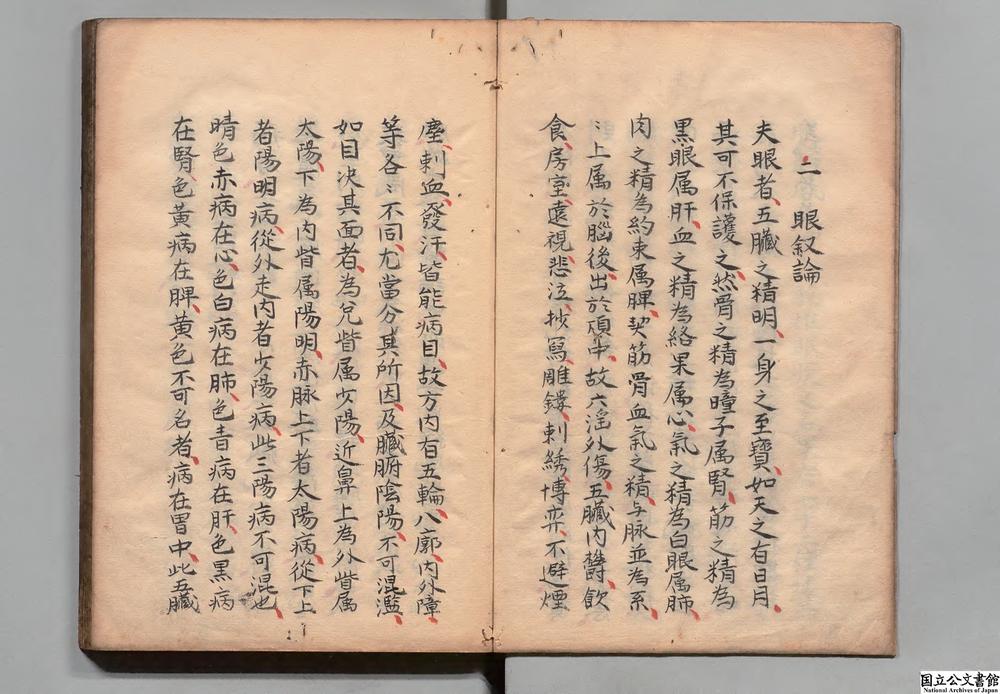 二 眼叙論
夫眼者、五臓之精明、一身之至寳、如天之有日月、
其可不保護之、然骨之精為瞳子属腎、筋之精為
黒眼属肝、血之精為絡果属心、氣之精為白眼属肺、
肉之精為約束属脾、契筋骨血氣之精、与脉並為系、
〻上属於脳後、出於項中、故六淫外傷、五臓内欝、飲
食、房室、遠視、悲泣、抄冩、雕鏤、刺綉、博弈、不避煙
塵、刺血、發汗、皆能病目、故方内有五輪、八廓、内外障、
等各〻不同、尤當分其所因、及臓腑陰陽、不可混濫、
如目决其面者、為兌眥属少陽、近鼻上為外眥属
太陽、下為内眥属陽明、赤脉上下者太陽病、從下上
者陽明病、從外走内者少陽病、此三陽病不可混也、
晴色赤病在心、色白病在肺、色青病在肝、色黒病
在腎、色黄病在脾、黄色不可名者、病在胃中、此五臓
国立公文書館
National Archives of Japan